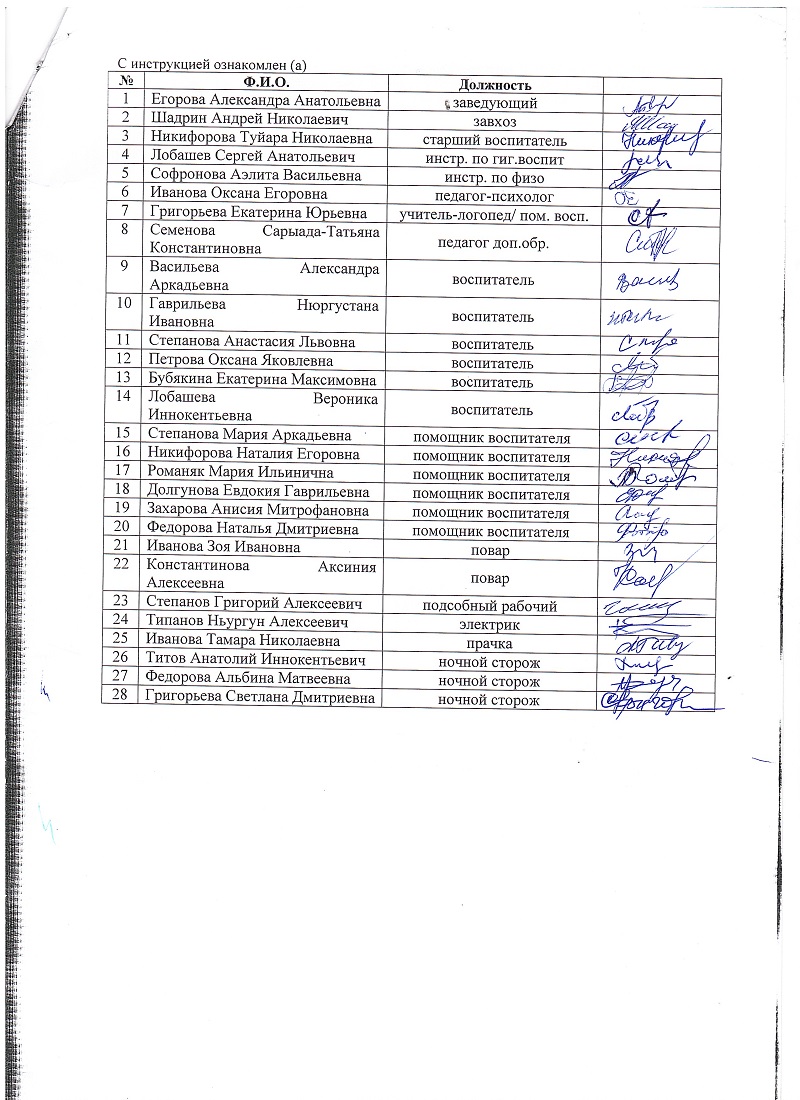 С инструкцией ознакомлен (а)
№ Ф.И.О. Должность
1 Егорова Александра Анатольевна заведующий
2 Шадрин Андрей Николаевич завхоз
3 Никифорова Туйара Николаевна старший воспитатель
4 Лобашев Сергей Анатольевич инстр. по гиг.воспит
5 Софронова Аэлита Васильевна инстр. по физо
6 Иванова Оксана Егоровна педагог-психолог
7 Григорьева Екатерина Юрьевна учитель-логопед/ пом. восп.
8 Семенова Сарыада-Татьяна
Константиновна педагог доп.обр.
9 Васильева Александра
Аркадьевна воспитатель
10 Гаврильева Нюргустана
Ивановна воспитатель
11 Степанова Анастасия Львовна воспитатель
12 Петрова Оксана Яковлевна воспитатель
13 Бубякина Екатерина Максимовна воспитатель
14 Лобашева Вероника
Иннокентьевна воспитатель
15 Степанова Мария Аркадьевна помощник воспитателя
16 Никифорова Наталия Егоровна помощник воспитателя
17 Романяк Мария Ильинична помощник воспитателя
18 Долгунова Евдокия Гаврильевна помощник воспитателя
19 Захарова Анисия Митрофановна помощник воспитателя
20 Федорова Наталья Дмитриевна помощник воспитателя
21 Иванова Зоя Ивановна повар
22 Константинова Аксиния
Алексеевна повар
23 Степанов Григорий Алексеевич подсобный рабочий
24 Типанов Ньургун Алексеевич электрик
25 Иванова Тамара Николаевна прачка
26 Титов Анатолий Иннокентьевич ночной сторож
27 Федорова Альбина Матвеевна ночной сторож
28 Григорьева Светлана Дмитриевна ночной сторож